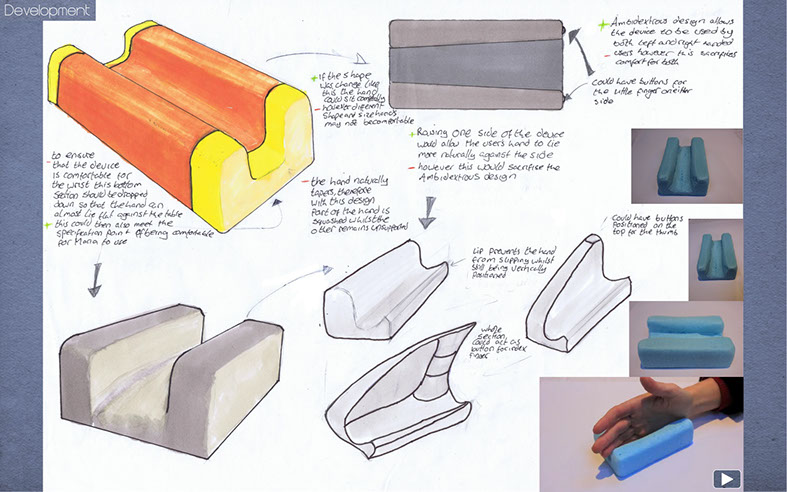 Development
+ If the shape
was change like
this the hand
could sit comfortably
- however different
shape and size hands
may not be comfortable
+ Ambidextrous design allows
the device to be used by
both left and right handed
- users however this sacrifices
comfort for both
could have buttons for
the little finger on either
side
+ Raising one side of the device
would allow the users hand to lie
more naturally against the side
- however this would sacrifice the
Ambidextrous design
to ensure
- that the device
is comfortable for
the wrist this bottom
section should be dropped
down so that the hand can
almost lie flat against the table
+ this could then also meet the
specification point of being comfortable
for Maria to use
- the hand naturally
tapers, therefore
with this design
part of the hand is
squashed whilst the
other remains unsupported
Could have buttons
positioned on the
top for the thumb
Lip prevents the hand
from slipping whilst
still being vertically
positioned
whole
section
could act as
button for index
finger